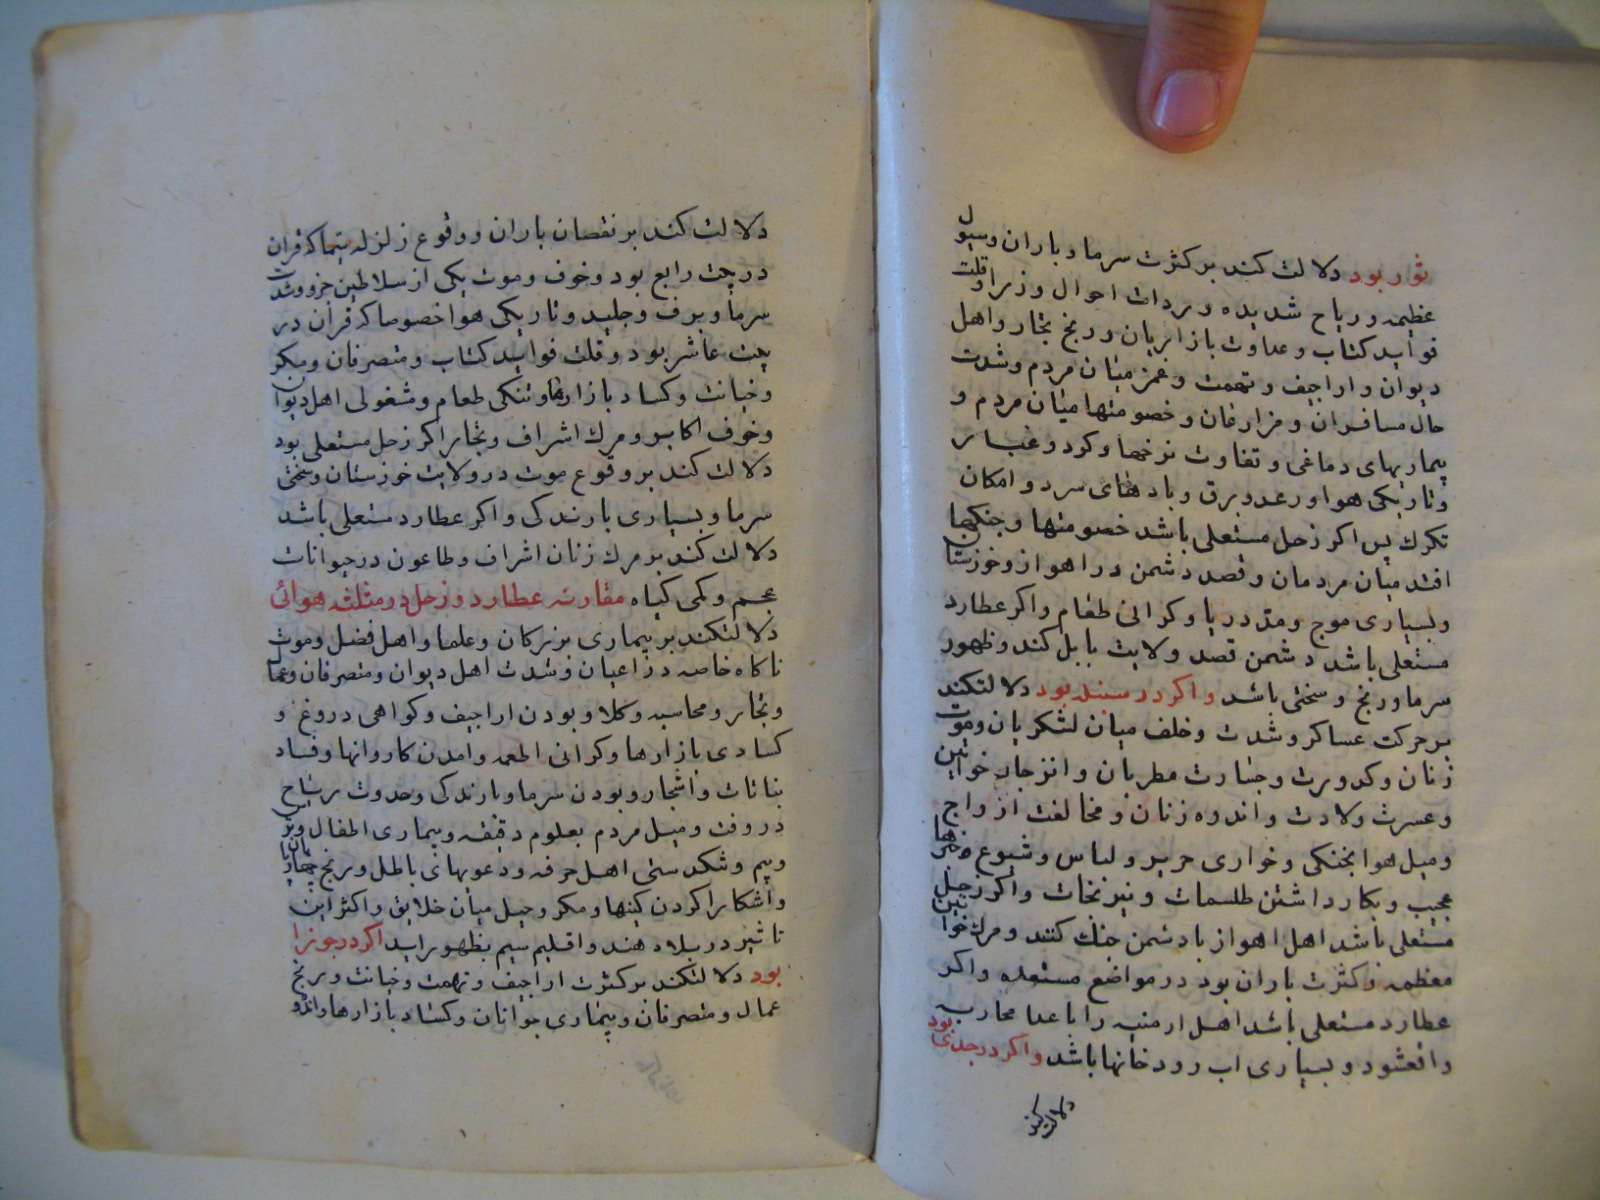 ثور بود دلالت کند بر کثرت سرما و باران و سیول
عظیمه و ریاح شدیده و بردات احوال وزرا و قلت
فواید کتاب و عداوت بازاریان و رنج تجار و اهل
دیوان و اراجیف و تهمت و غمز میان مردم و شدت
حال مسافران و مزارعان و خصومتها میان مردم و
بیماریهای دماغی و تفاوت نرخها و کرد و غبار
و تاریکی هوا و رعد و برق و بادهای سرد و امکان
تکرک پس اکر زحل مستعلی باشد خصومتها و جنکها
افتد میان مردمان و قصد دشمن در اهواز و خوزستان
و بسیاری موج و مد دریا و کرانی طعام و اکر عطارد
مستعلی باشد دشمن قصد ولایت بابل کند و ظهور
سرما و رنج و سختی باشد و اکر در سنبله بود دلالتکند
بر حرکت عساکر و شدت و خلف میان لشکریان و موت
زنان و کدورت و جسارت مطربان و انزجار خواتین
و عسرت ولادت و اندوه زنان و مخالفت ازواج
و میل هوا بخنکی و خواری حریر و لباس و شیوع خبرها
عجیب و بکار داشتن طلسمات و نیرنجات و اکر زحل
مستعلی باشد اهل اهواز با دشمن جنک کنند و مرک خواتین
معظمه و کثرت باران بود در مواضع مستعده و اکر
عطارد مستعلی باشد اهل ارمنیه را با عدا محاربه
واقعشود و بسیاری اب رودخانها باشد و اکر در جدی بود
دلالت کند
دلالت کند بر نقصان باران و وقوع زلزله سیما که قران
در بیت رابع بود و خوف و موت یکی از سلاطین جزو و شدت
سرما و برف و جلید و تاریکی هوا خصوصا که قران در
بیت عاشر بود و قلت فواید کتاب و متصرفان و مکر
و خیانت و کساد بازارها و تنکی طعام و مشغولی اهل دیوان
و خوف اکابر و مرک اشراف و تجار اکر زحل مستعلی بود
دلالت کند بر وقوع موت در ولایت خوزستان و سختی
سرما و بسیاری بارندکی و اکر عطارد مستعلی باشد
دلالت کند بر مرک زنان اشراف و طاعون در حیوانات
عجم و کمی کیاه مقارنه عطارد و زحل در مثلثه هوائی
دلالتکند بر بیماری بزرکان و علما و اهل فضل و موت
ناکاه خاصه در اعیان و شدت اهل دیوان و متصرفان و عما
و تجار و محاسبه وکلا و بودن اراجیف و کواهی دروغ و
کسادی بازارها و کرانی اطعمه و امدن کاروانها و فساد
نباتات و اشجار و بودن سرما و بارندکی و حدوث ریاح
در وقت و میل مردم بعلوم دقیقه و بیماری اطفال و ترس
و بیم و شکستی اهل حرفه و دعویهای باطل و رنج چهارپایان
و اشکارا کردن کینها و مکر و حیل میان خلایق و اکثر این
تاثیر در بلاد هند و اقلیم سیم بظهور اید اکر در جوزا
بود دلالتکند بر کثرت اراجیف و تهمت و خیانت و رنج
عمال و متصرفان و بیماری جوانان و کساد بازارها و اندو